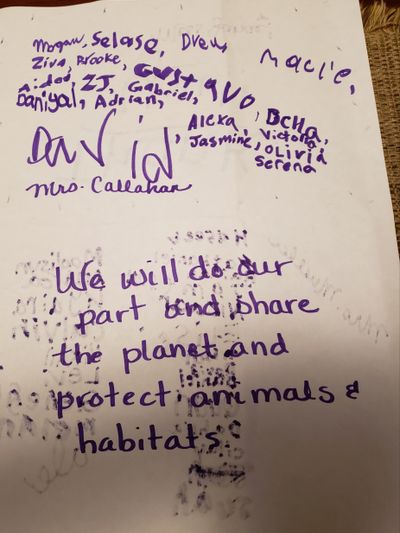 Morgan, Selase, Drew, Macie,
Ziva, Brooke,
Aided, ZJ, Gustavo,
Daniyal, Adrian, Gabriel,
Alexa, DCHA,
David, Jasmine, Victoria,
Olivia
Serena
Mrs. Callahan
We will do our
part and share
the planet and
protect animals &
habitats.